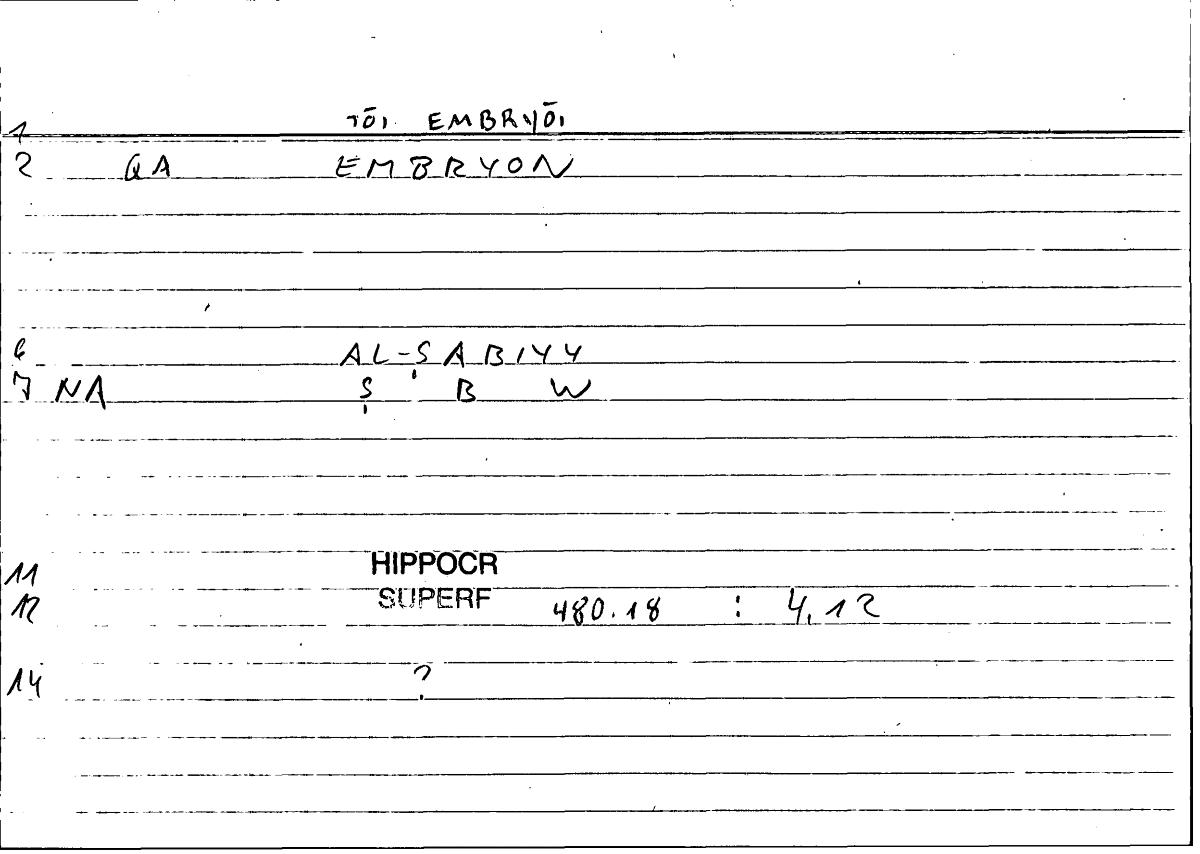 1 TŌI EMBRYŌI
2 QA EMBRYON
6 AL-ṢABIYY
7 NA Ṣ B W
11 HIPPOCR
12 SUPERF 480.18 : 4,12
14 ?